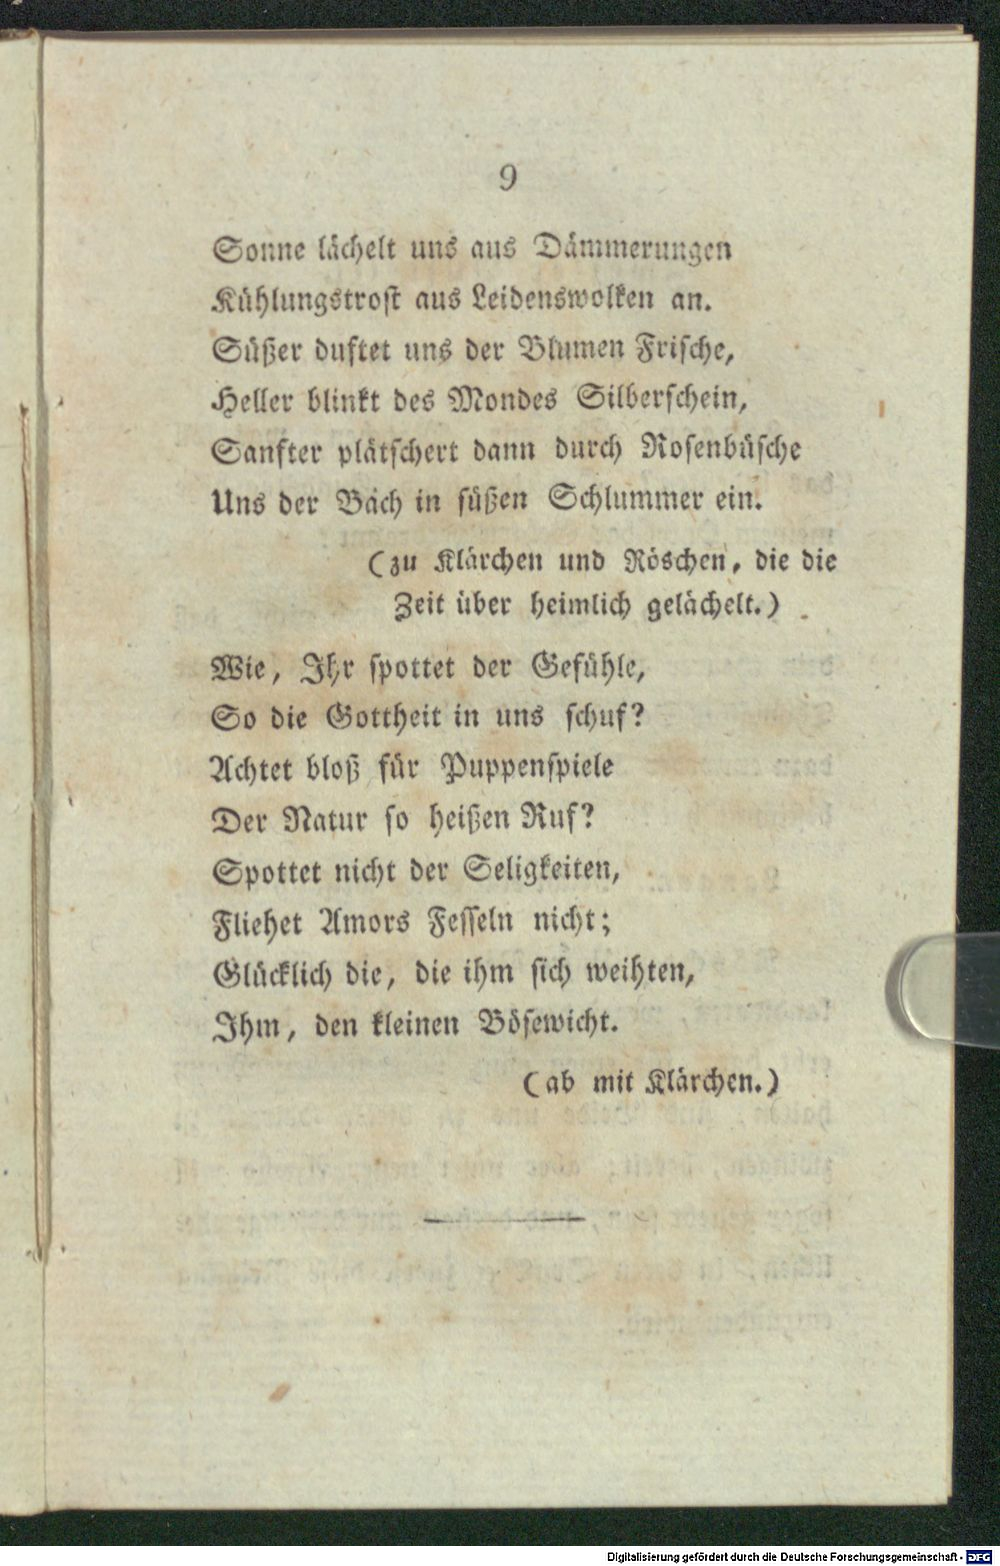 9
Sonne lächelt uns aus Dämmerungen
Kühlungstrost aus Leidenswolken an.
Süßer duftet uns der Blumen Frische,
Heller blinkt des Mondes Silberschein,
Sanfter plätschert dann durch Rosenbüsche
Uns der Bach in süßen Schlummer ein.
(zu Klärchen und Röschen, die die
Zeit über heimlich gelächelt.)
Wie, Ihr spottet der Gefühle,
So die Gottheit in uns schuf?
Achtet bloß für Puppenspiele
Der Natur so heißen Ruf?
Spottet nicht der Seligkeiten,
Fliehet Amors Fesseln nicht;
Glücklich die, die ihm sich weihten,
Ihm, den kleinen Bösewicht.
(ab mit Klärchen.)
Digitalisierung gefördert durch die Deutsche Forschungsgemeinschaft - DFG